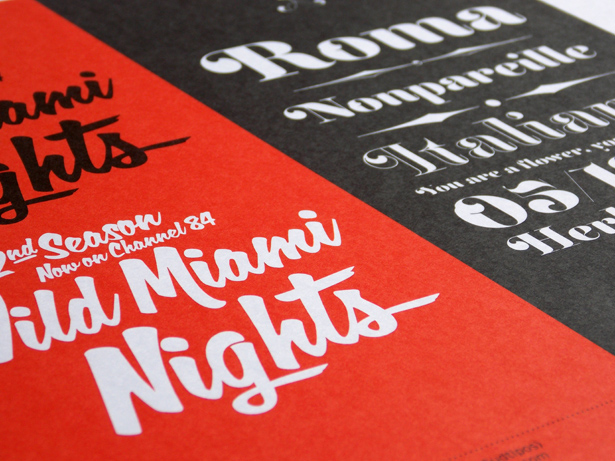 ami
ghts
2nd Season
Now on Channel 84
Wild Miami
Nights
Roma
Nonpareille
Italian
You are a flower, yo
05/1
Her